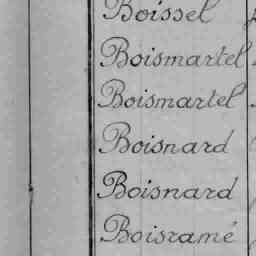 Boissel
Boismartel
Boismartel
Boisnard
Boisnard
Boisramé